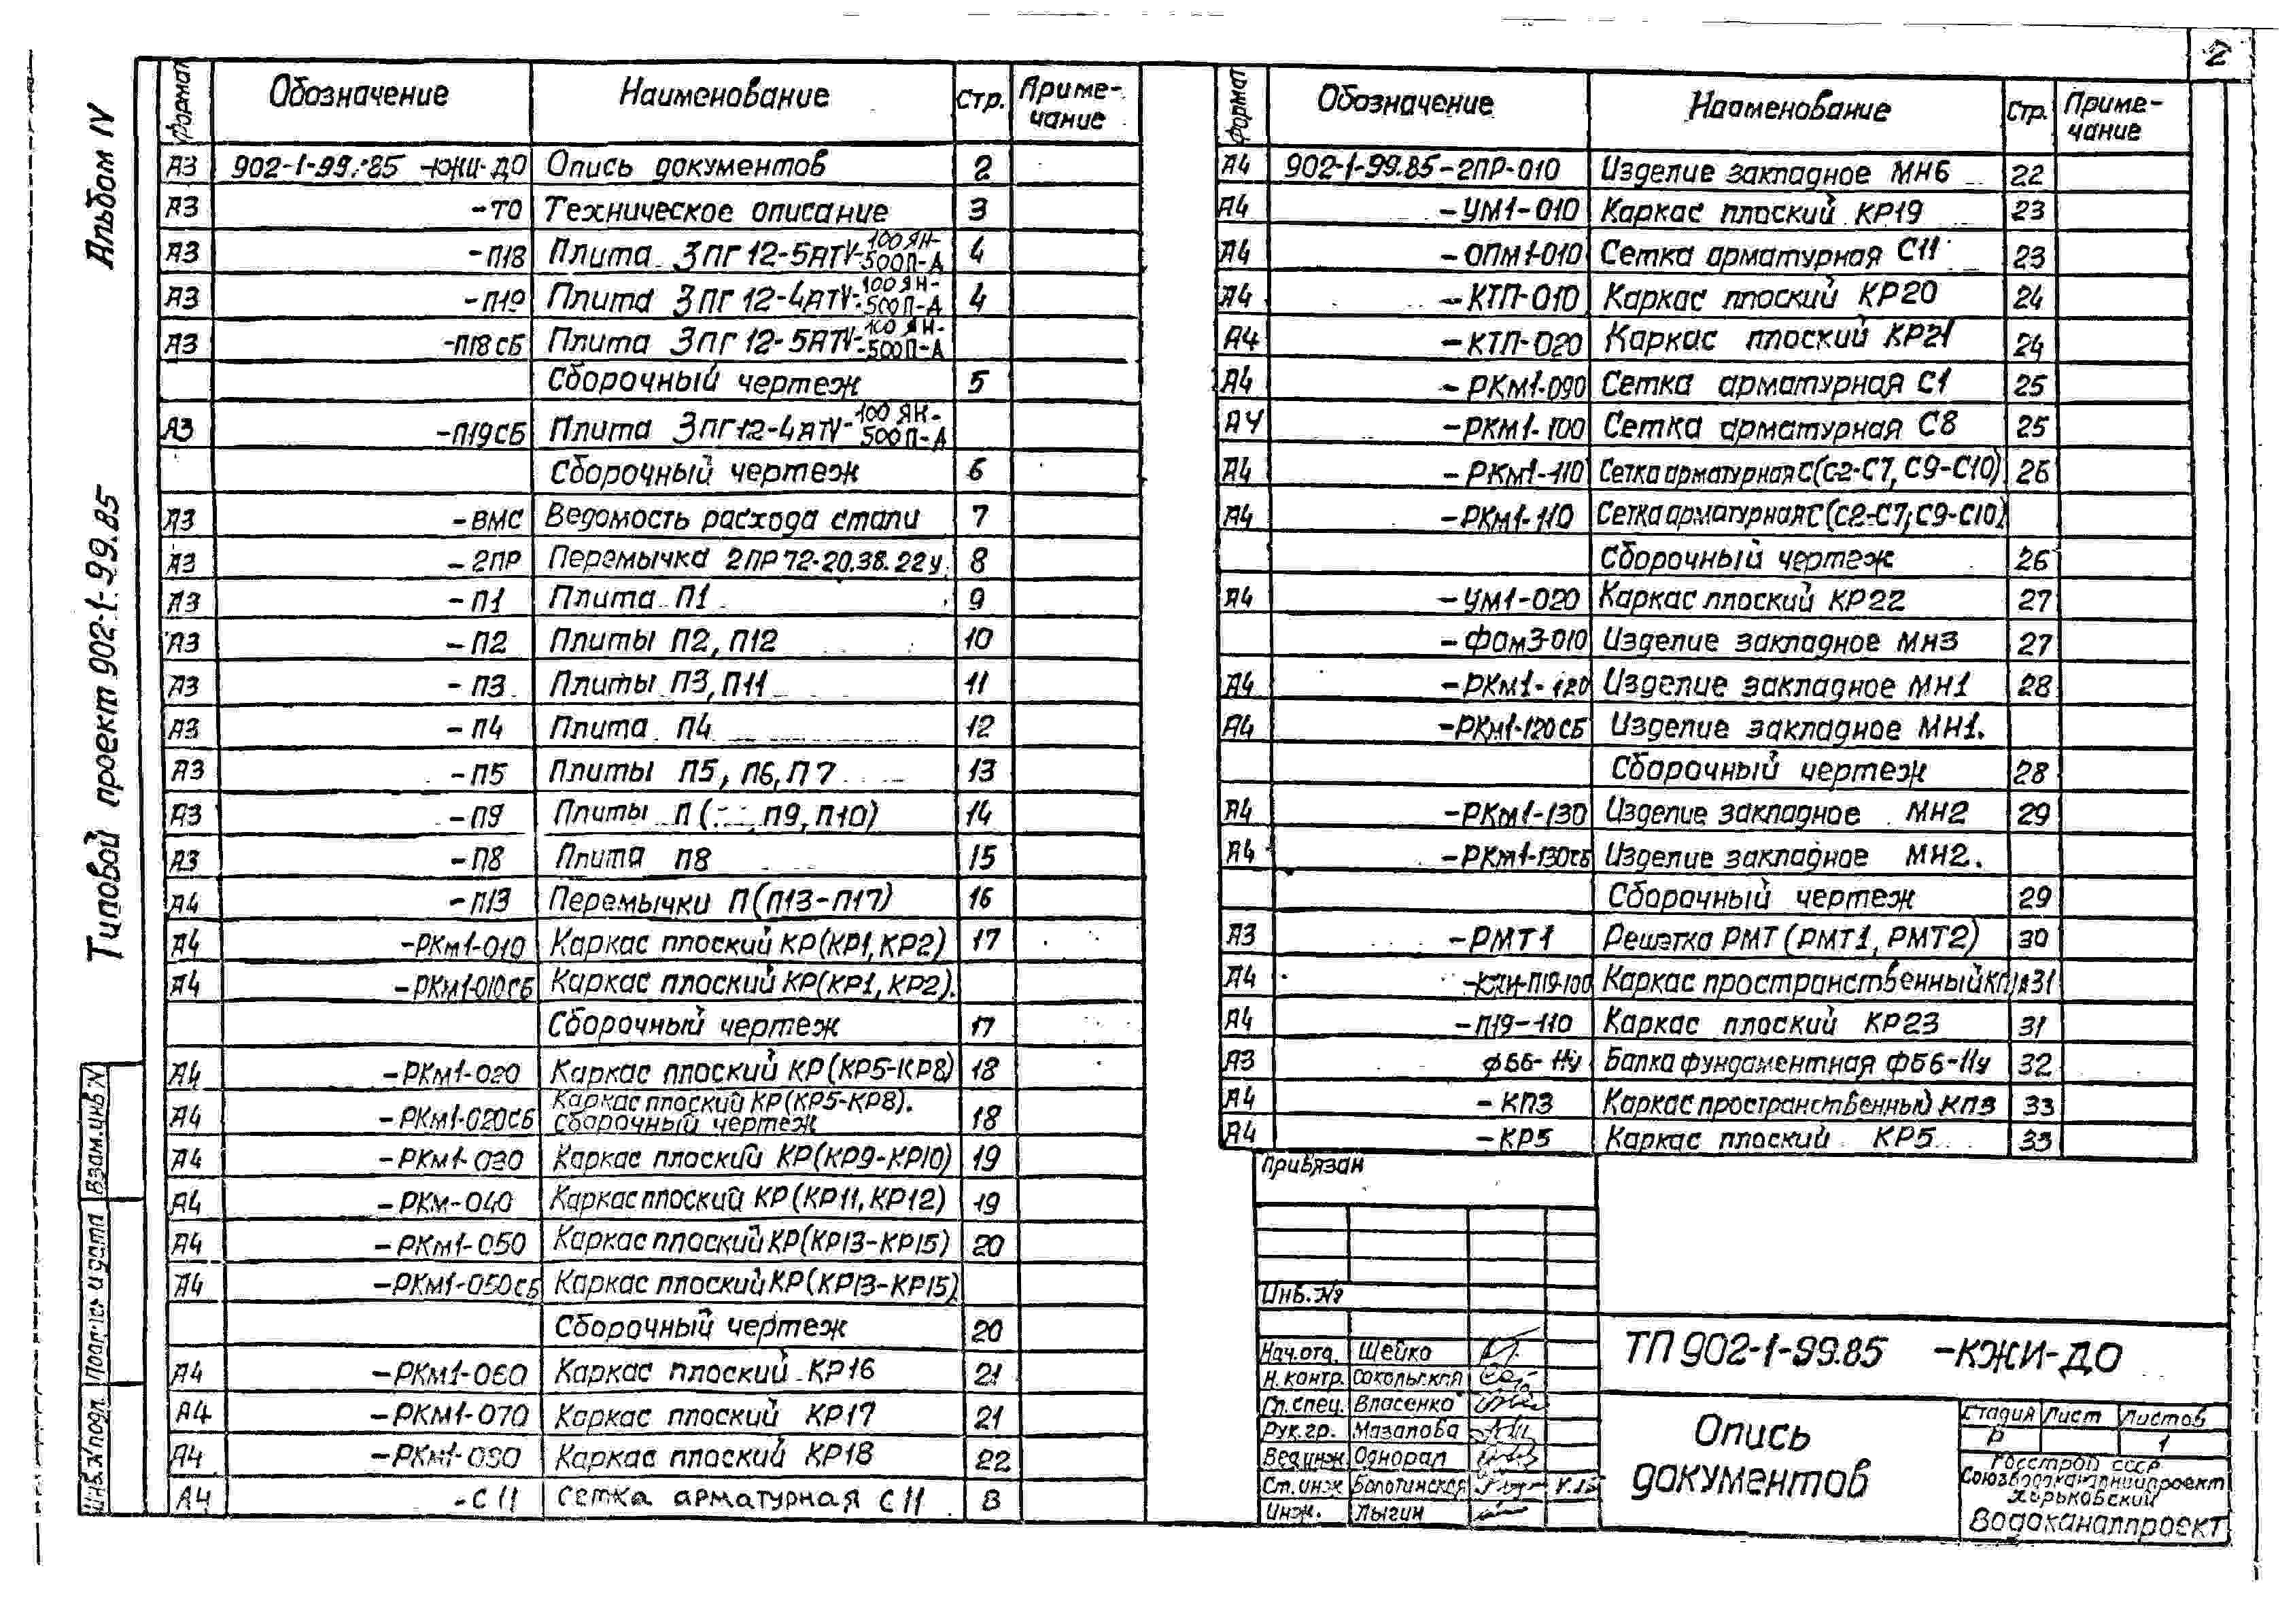 2
Альбом IV
Типовой проект 902-1-99.85
Взам.инв.N
Подпись и дата
Инв.N подл.
Формат Обозначение Наименование Стр. Приме-чание
А3 902-1-99.85 -КЖИ-ДО Опись документов 2
А3 -ТО Техническое описание 3
А3 -П18 Плита 3ПГ12-5АТV-100ЯН-500П-А 4
А3 -П19 Плита 3ПГ12-4АТV-100ЯН-500П-А 4
А3 -П18СБ Плита 3ПГ12-5АТV-100ЯН-500П-А
Сборочный чертеж 5
А3 -П19СБ Плита 3ПГ12-4АТV-100ЯН-500П-А
Сборочный чертеж 6
А3 -ВМС Ведомость расхода стали 7
А3 -2ПР Перемычка 2ПР72-20.38.22у 8
А3 -П1 Плита П1 9
А3 -П2 Плиты П2, П12 10
А3 -П3 Плиты П3, П11 11
А3 -П4 Плита П4 12
А3 -П5 Плиты П5, П6, П7 13
А3 -П9 Плиты П (П9, П10) 14
А3 -П8 Плита П8 15
А4 -П13 Перемычки П(П13-П17) 16
А4 -РКм1-010 Каркас плоский КР(КР1, КР2) 17
А4 -РКм1-010СБ Каркас плоский КР(КР1, КР2).
Сборочный чертеж 17
А4 -РКм1-020 Каркас плоский КР(КР5-КР8) 18
А4 -РКм1-020СБ Каркас плоский КР(КР5-КР8). Сборочный чертеж 18
А4 -РКм1-030 Каркас плоский КР(КР9-КР10) 19
А4 -РКм-040 Каркас плоский КР(КР11, КР12) 19
А4 -РКм1-050 Каркас плоский КР(КР13-КР15) 20
А4 -РКм1-050СБ Каркас плоский КР(КР13-КР15)
Сборочный чертеж 20
А4 -РКм1-060 Каркас плоский КР16 21
А4 -РКм1-070 Каркас плоский КР17 21
А4 -РКм1-080 Каркас плоский КР18 22
А4 -С11 Сетка арматурная С11 8
Формат Обозначение Наименование Стр. Приме-чание
А4 902-1-99.85-2ПР-010 Изделие закладное МН6 22
А4 -УМ1-010 Каркас плоский КР19 23
А4 -ОПм1-010 Сетка арматурная С11 23
А4 -КТП-010 Каркас плоский КР20 24
А4 -КТП-020 Каркас плоский КР21 24
А4 -РКм1-090 Сетка арматурная С1 25
А4 -РКм1-100 Сетка арматурная С8 25
А4 -РКм1-110 Сетка арматурная С(С2-С7, С9-С10) 26
А4 -РКм1-110 Сетка арматурная С(С2-С7, С9-С10)
Сборочный чертеж 26
А4 -УМ1-020 Каркас плоский КР22 27
-ФОм3-010 Изделие закладное МН3 27
А4 -РКм1-120 Изделие закладное МН1 28
А4 -РКм1-120СБ Изделие закладное МН1.
Сборочный чертеж 28
А4 -РКм1-130 Изделие закладное МН2 29
А4 -РКм1-130СБ Изделие закладное МН2.
Сборочный чертеж 29
А3 -РМТ1 Решэтка РМТ (РМТ1, РМТ2) 30
А4 -КЖИ-П19-100 Каркас пространственный 31
А4 -П19-110 Каркас плоский КР23 31
А3 ФБ6-11у Балка фундаментная ФБ6-11у 32
А4 -КП3 Каркас пространственный КП3 33
А4 -КР5 Каркас плоский КР5 33
Привязан
Инв.№
Нач.отд. Шейко
Н.контр. Сокольская
Гл.спец. Власенко
Рук.гр. Мазалова
Вед.инж Однорал
Ст.инж Болотинская
Инж. Лыгин
ТП 902-1-99.85 -КЖИ-ДО
Опись
документов
Стадия Лист Листов
Р 1
Госстрой СССР
Союзводоканалниипроект
Харьковский
Водоканалпроект